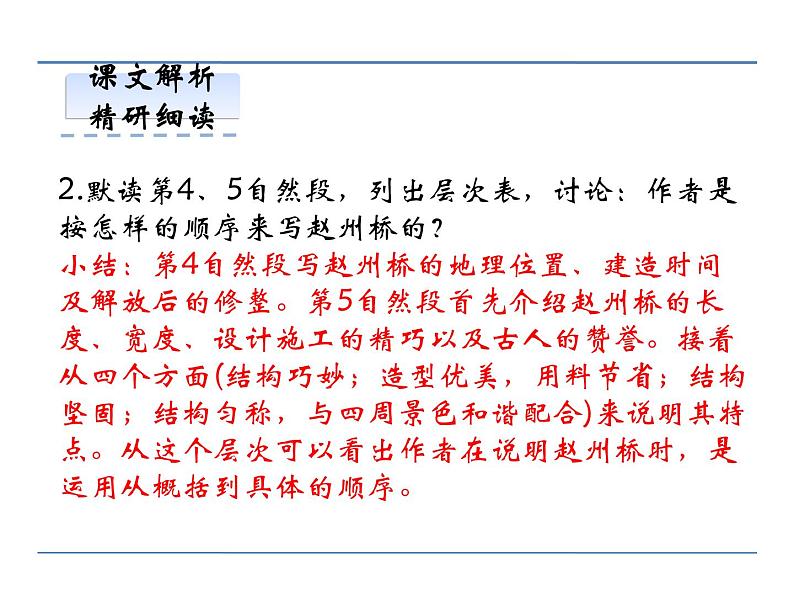 课文解析
精研细读
2.默读第4、5自然段，列出层次表，讨论：作者是
按怎样的顺序来写赵州桥的？
小结：第4自然段写赵州桥的地理位置、建造时间
及解放后的修整。第5自然段首先介绍赵州桥的长
度、宽度、设计施工的精巧以及古人的赞誉。接着
从四个方面(结构巧妙；造型优美，用料节省；结构
坚固；结构匀称，与四周景色和谐配合)来说明其特
点。从这个层次可以看出作者在说明赵州桥时，是
运用从概括到具体的顺序。